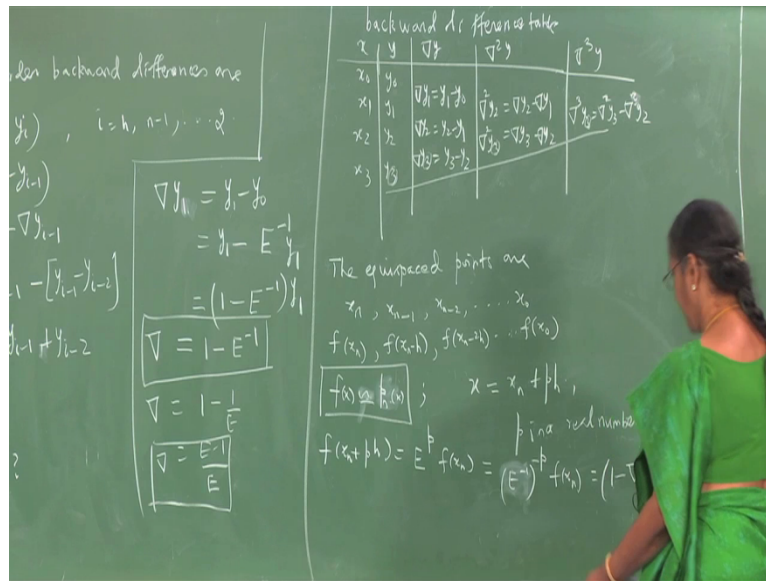 der backward differences are
y_i) , i=n, n-1, ... 2
-y_{i-1})
-∇y_{i-1}
-1 - [y_{i-1} - y_{i-2}]
y_{i-1} + y_{i-2}
?
∇y_1 = y_1 - y_0
= y_1 - E^{-1} y_1
= (1 - E^{-1}) y_1
∇ = 1 - E^{-1}
∇ = 1 - 1/E
∇ = E-1/E
backward difference table
x y ∇y ∇^2y ∇^3y
x_0 y_0
∇y_1 = y_1 - y_0
x_1 y_1 ∇^2y_2 = ∇y_2 - ∇y_1
∇y_2 = y_2 - y_1 ∇^3y_3 = ∇^2y_3 - ∇^2y_2
x_2 y_2 ∇^2y_3 = ∇y_3 - ∇y_2
∇y_3 = y_3 - y_2
x_3 y_3
The equispaced points are
x_n, x_{n-1}, x_{n-2}, ..... x_0
f(x_n), f(x_n-h), f(x_n-2h) ... f(x_0)
f(x) ≃ p_n(x) ; x = x_n + ph,
p is a real number
f(x_n + ph) = E^p f(x_n) = (E^{-1})^{-p} f(x_n) = (1 - ∇